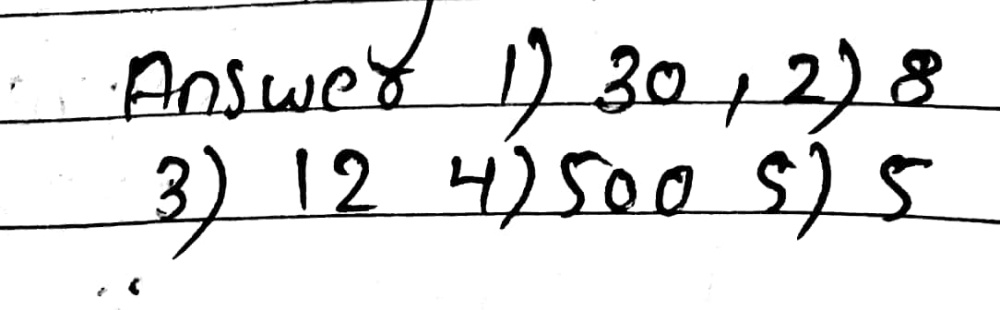 Answer 1) 30, 2) 8
3) 12 4) 500 5) 5